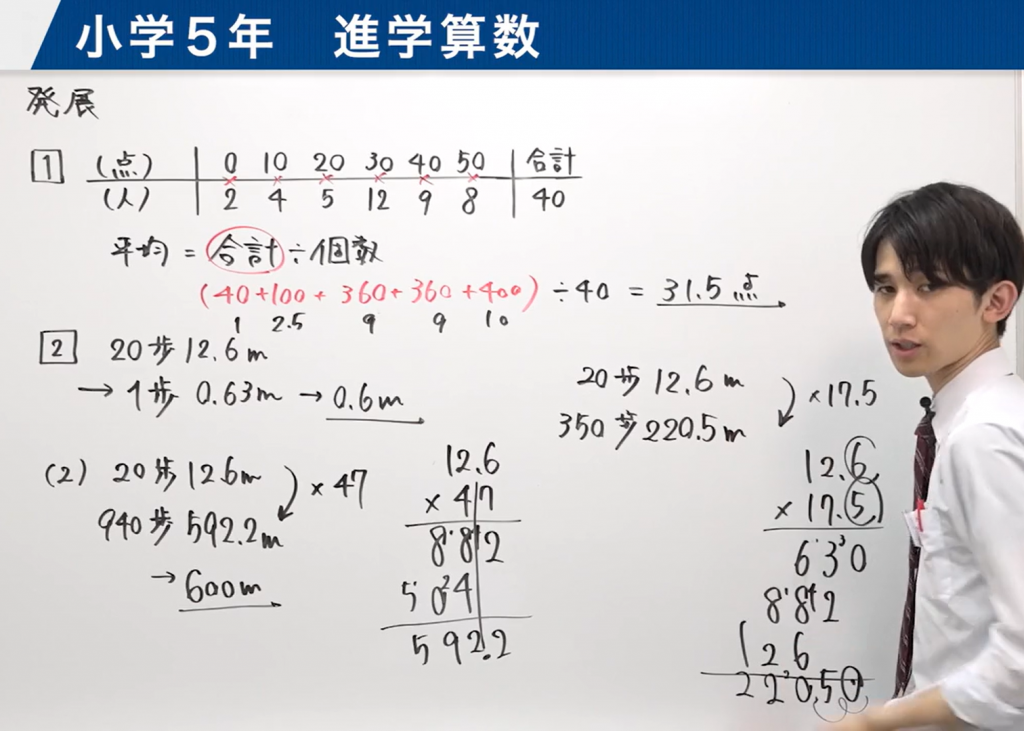 小学5年 進学算数
発展
1 (点) 0 10 20 30 40 50 合計
(人) 2 4 5 12 9 8 40
平均 = 合計 ÷ 個数
(40+100+360+360+400) ÷40 = 31.5点
1 2.5 9 9 10
2 20歩 12.6m
→ 1歩 0.63m → 0.6m
(2) 20歩 12.6m × 47
940歩 592.2m
→ 600m
12.6
× 47
882
504
592.2
20歩 12.6m ×17.5
350歩 220.5m
12.6
× 17.5
630
882
126
220.50